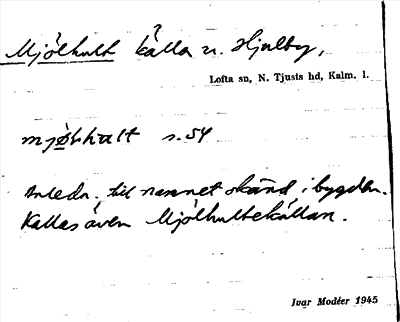 Mjölhult källa n. Hjulby,
Lofta sn, N. Tjusts hd, Kalm. l.
mjø̀lhult s. 54
Anledn. till namnet okänd i bygden.
Kallas även Mjölhultekällan.
Ivar Modéer 1945